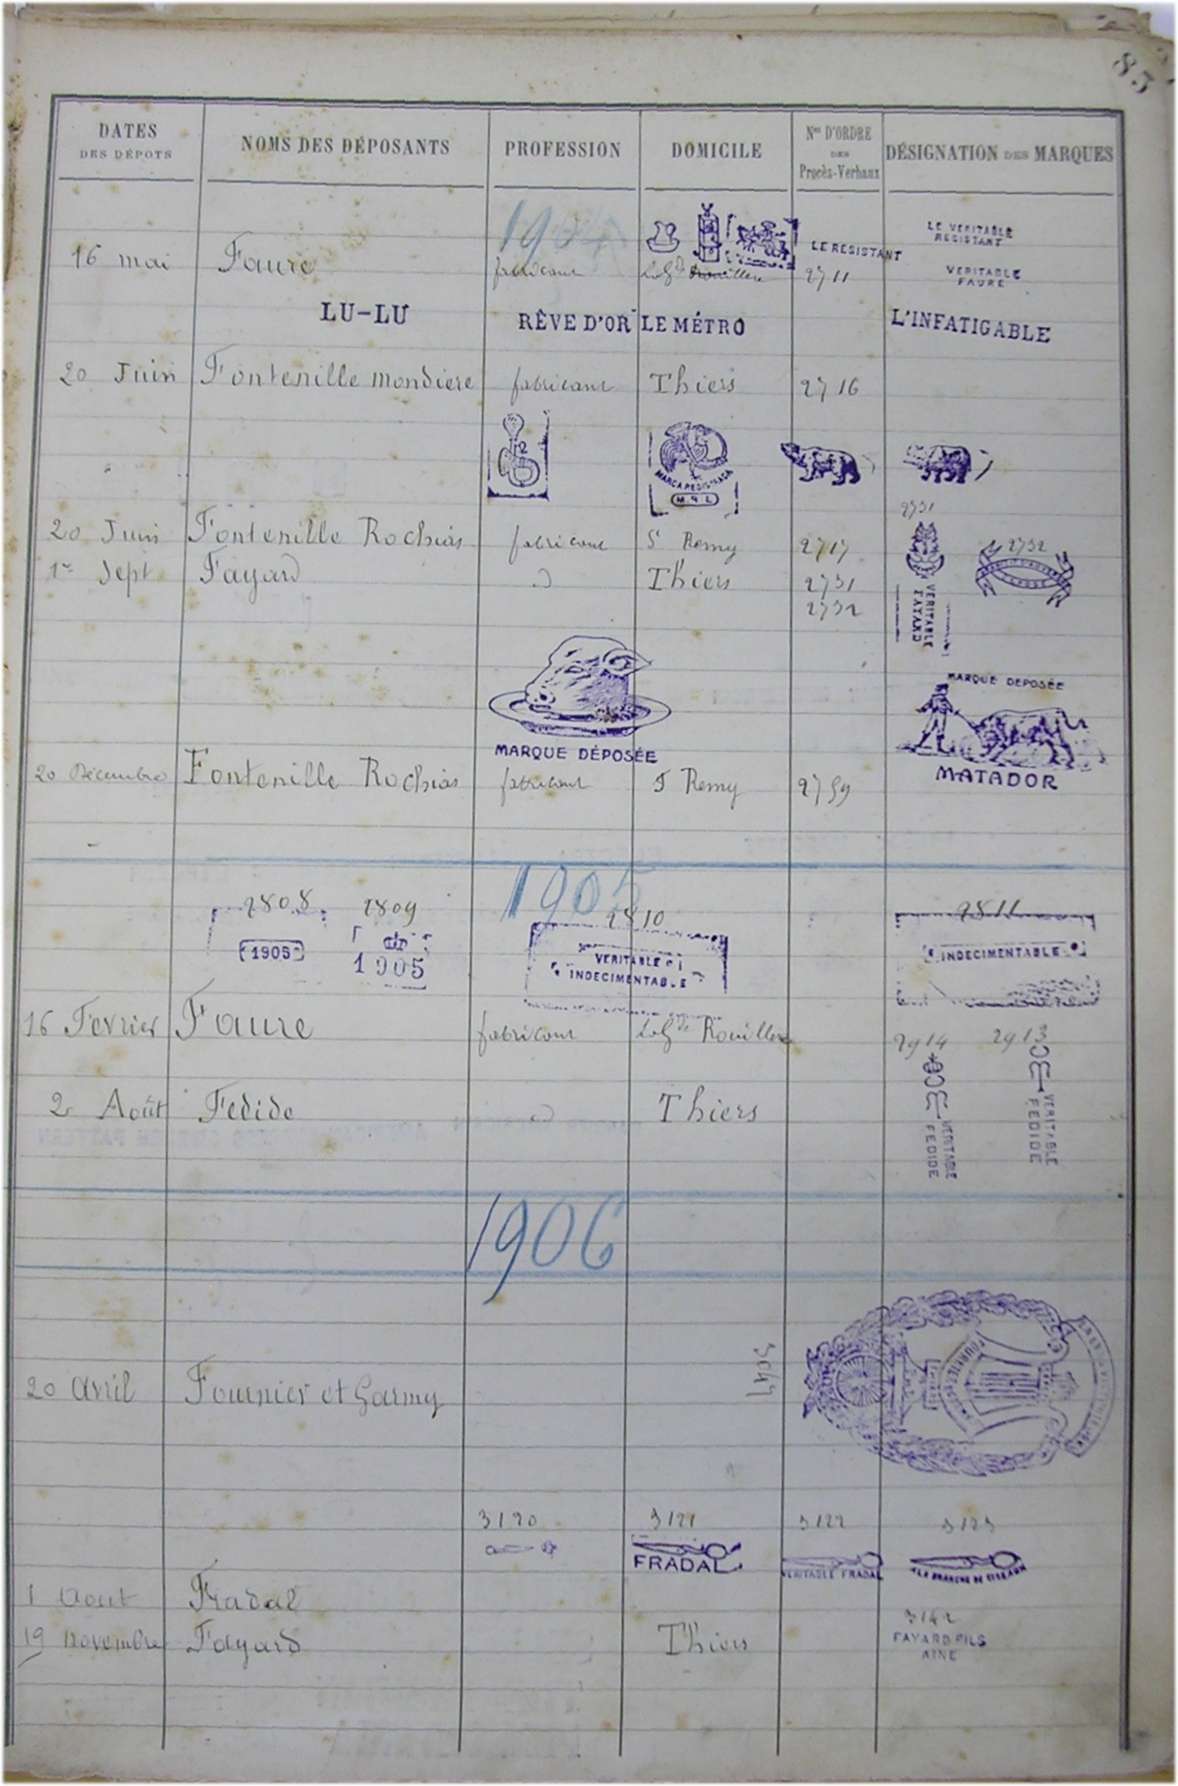 85
DATES DES DÉPOTS NOMS DES DÉPOSANTS PROFESSION DOMICILE Nos D'ORDRE DES Procès-Verbaux DÉSIGNATION DES MARQUES
1904
LE RESISTANT LE VERITABLE RESISTANT
16 mai Faure fabricant 2711 VERITABLE FAURE
LU-LU RÊVE D'OR LE MÉTRO L'INFATIGABLE
20 Juin Fontenille mondiere fabricant Thiers 2716
MARCA REGISTRADA
2731
20 Juin Fontenille Rochias fabricant St Remy 2717
2732
1er Sept Fayard d Thiers 2731
2732
VERITABLE FAYARD
MARQUE DEPOSÉE
MARQUE DÉPOSÉE
MATADOR
20 Décembre Fontenille Rochias fabricant St Remy 2759
1905
2808 2809 2810 2811
1905 1905 VERITABLE INDECIMENTABLE INDECIMENTABLE
16 Fevrier Faure fabricant Rouillere
2914 2913
2 Août Fedide d Thiers
VERITABLE FEDIDE VERITABLE FEDIDE
1906
3047
20 avril Fournier et Garmy
3120 3121 3122 3123
FRADAL VERITABLE FRADAL A LA BRANCHE DE CISEAUX
1 Aout Fradal
3142
19 novembre Fayard Thiers FAYARD FILS AINE